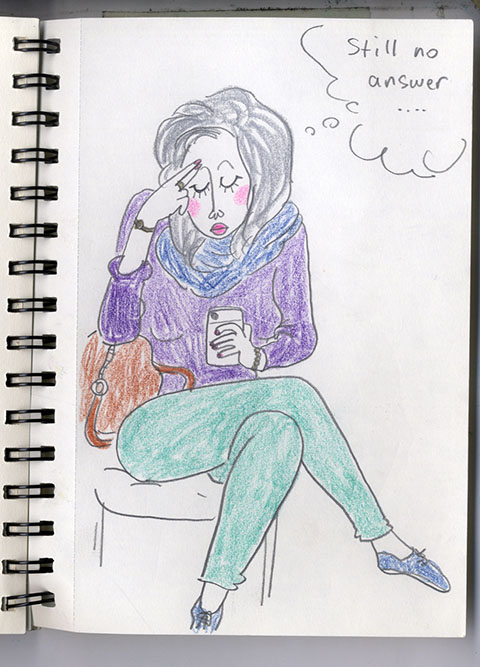 Still no
answer
....